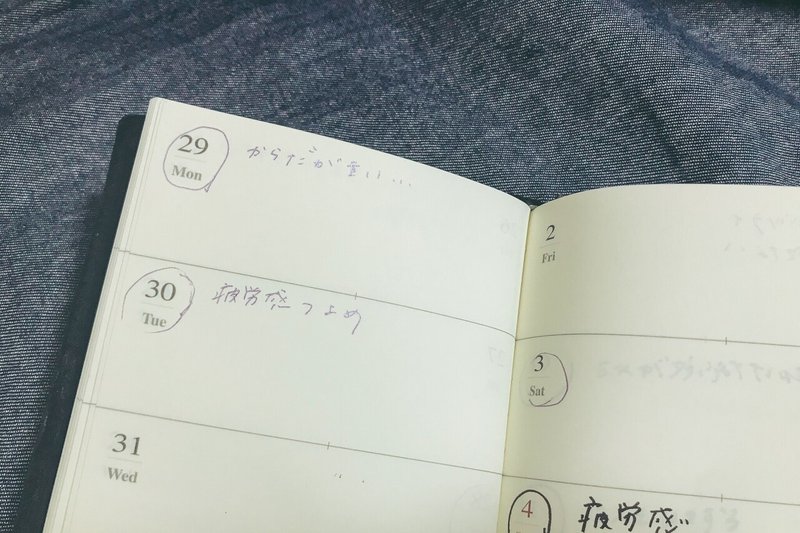 29
Mon
からだが重い...
30
Tue
疲労感つよめ
31
Wed
2
Fri
3
Sat
4
疲労感